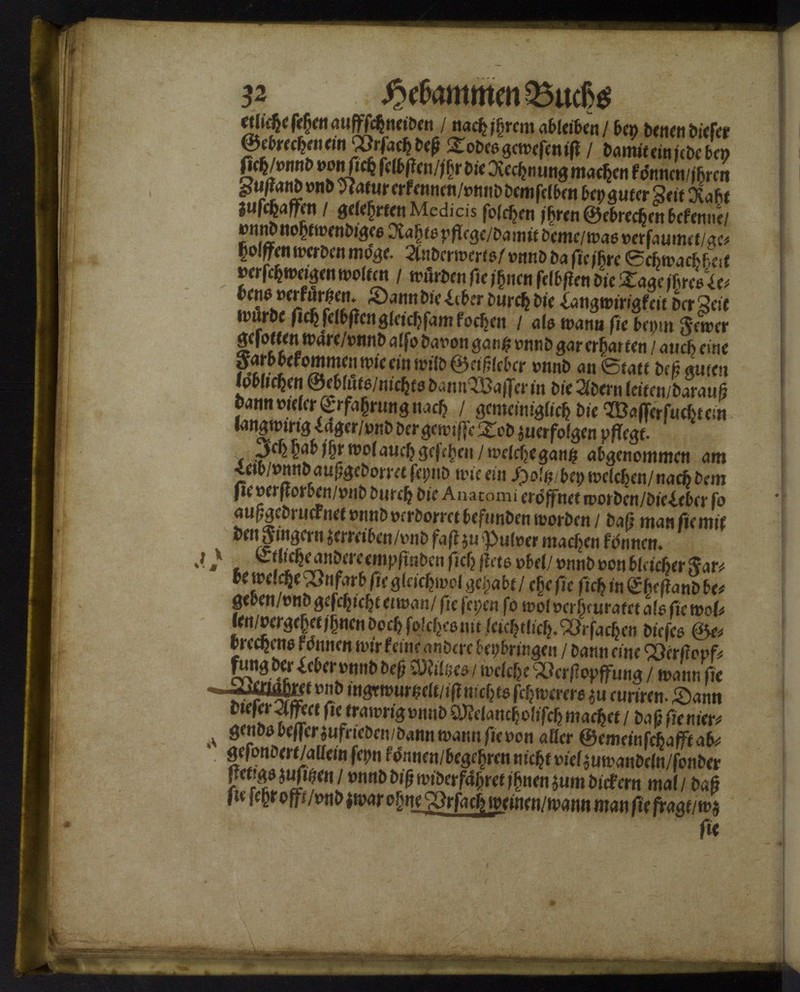 32 Hebammen Buchs
etliche sehen auffschneiden / nach jhrem ableiben / bey denen dieser
Gebrechen ein Vrsach deß Todes gewesen ist / damit ein jede bey
sich/vnnd von sich selbsten/jhr die Rechnung machen können/jhren
Zustand vnd Natur erkennen/vnnd demselben bey guter Zeit Raht
zuschaffen / gelehrten Medicis solchen jhren Gebrechen bekenne/
vnnd nohtwendiges Rahts pflege/damit deme/was versaumet/ge⸗
holffen werden möge. Anderwerts/ vnnd da sie jhre Schwachheit
verschweigen wolten / würden sie jhnen selbsten die Tage jhres Le⸗
bens verkürtzen. Dann die Leber durch die Langwirigkeit der Zeit
würde sich selbsten gleichsam kochen / als wann sie beym Fewer
gesotten wäre/vnnd also davon gantz vnnd gar erharten / auch eine
Farb bekommen wie ein wild Geißleber vnnd an Statt deß guten
löblichen Geblüts/nichts dann Wasser in die Adern leiten/darauß
dann vieler Erfahrung nach / gemeiniglich die Wassersucht ein
langwirig Läger/vnd der gewisse Tod zuerfolgen pflegt.
Ich hab jhr wol auch gesehen / welche gantz abgenommen am
Leib/vnnd außgedorret seynd wie ein Holtz/bey welchen/nach dem
sie verstorben/vnd durch die Anatomi eröffnet worden/die Leber so
außgedrucknet vnnd verdorret befunden worden / daß man sie mit
den Fingern zerreiben/vnd fast zu Pulver machen können.
Etliche andere empfinden sich stets vbel/ vnnd von bleicher Far⸗
be welche Vnfarb sie gleichwol gehabt / ehe sie sich in Ehestand be⸗
geben/vnd geschicht etwan/ sie seyen so wol verheuratet als sie wol⸗
len/vergehet jhnen doch solches nit leichtlich. Vrsachen dieses Ge⸗
brechens können wir keine andere beybringen / dann eine Verstopf⸗
fung der Leber vnnd deß Miltzes / welche Verstopffung / wann sie
Verjähret vnd ingewurtzelt/ist nichts schwerers zu curiren. Dann
dieser Affect sie trawrig vnnd Melancholisch machet / daß sie nier⸗
gends besser zufrieden/dann wann sie von aller Gemeinschafft ab⸗
gesondert/allein seyn können/begehren nicht viel zuwandeln/sonder
stetigs zusitzen / vnnd diß widerfähret jhnen zum dickern mal / daß
sie sehr offt/vnd zwar ohne Vrsach weinen/wann man sie fragt/wz
sie